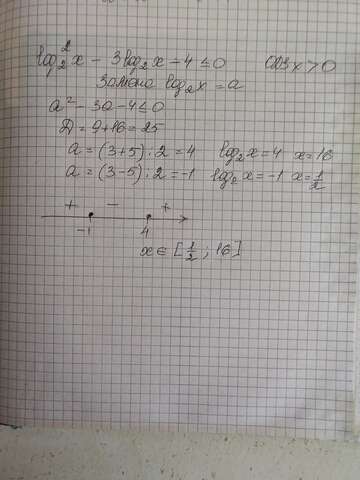 log₂²x - 3log₂x - 4 ≤ 0 ОДЗ x > 0
Замена log₂x = a
a² - 3a - 4 ≤ 0
D = 9 + 16 = 25
a = (3+5):2 = 4 log₂x = 4 x = 16
a = (3-5):2 = -1 log₂x = -1 x = 1/2
+ - +
-1 4
x ∈ [1/2 ; 16]